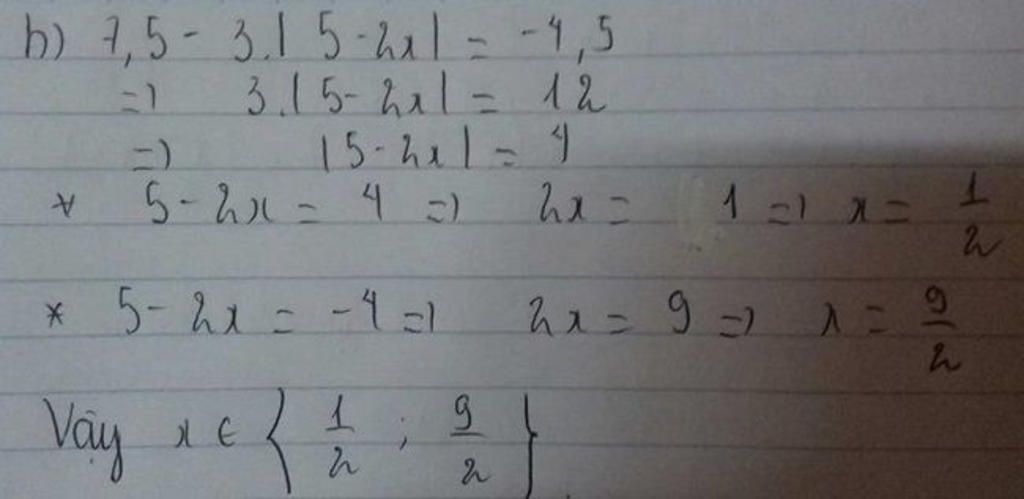 b) 7,5 - 3.|5 - 2x| = -4,5
=> 3.|5 - 2x| = 12
=> |5 - 2x| = 4
* 5 - 2x = 4 => 2x = 1 => x = 1/2
* 5 - 2x = -4 => 2x = 9 => x = 9/2
Vậy x ∈ { 1/2 ; 9/2 }